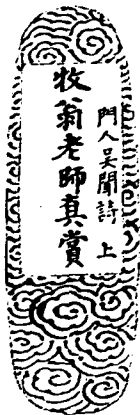 牧翁老師真賞
門人吴聞詩 上